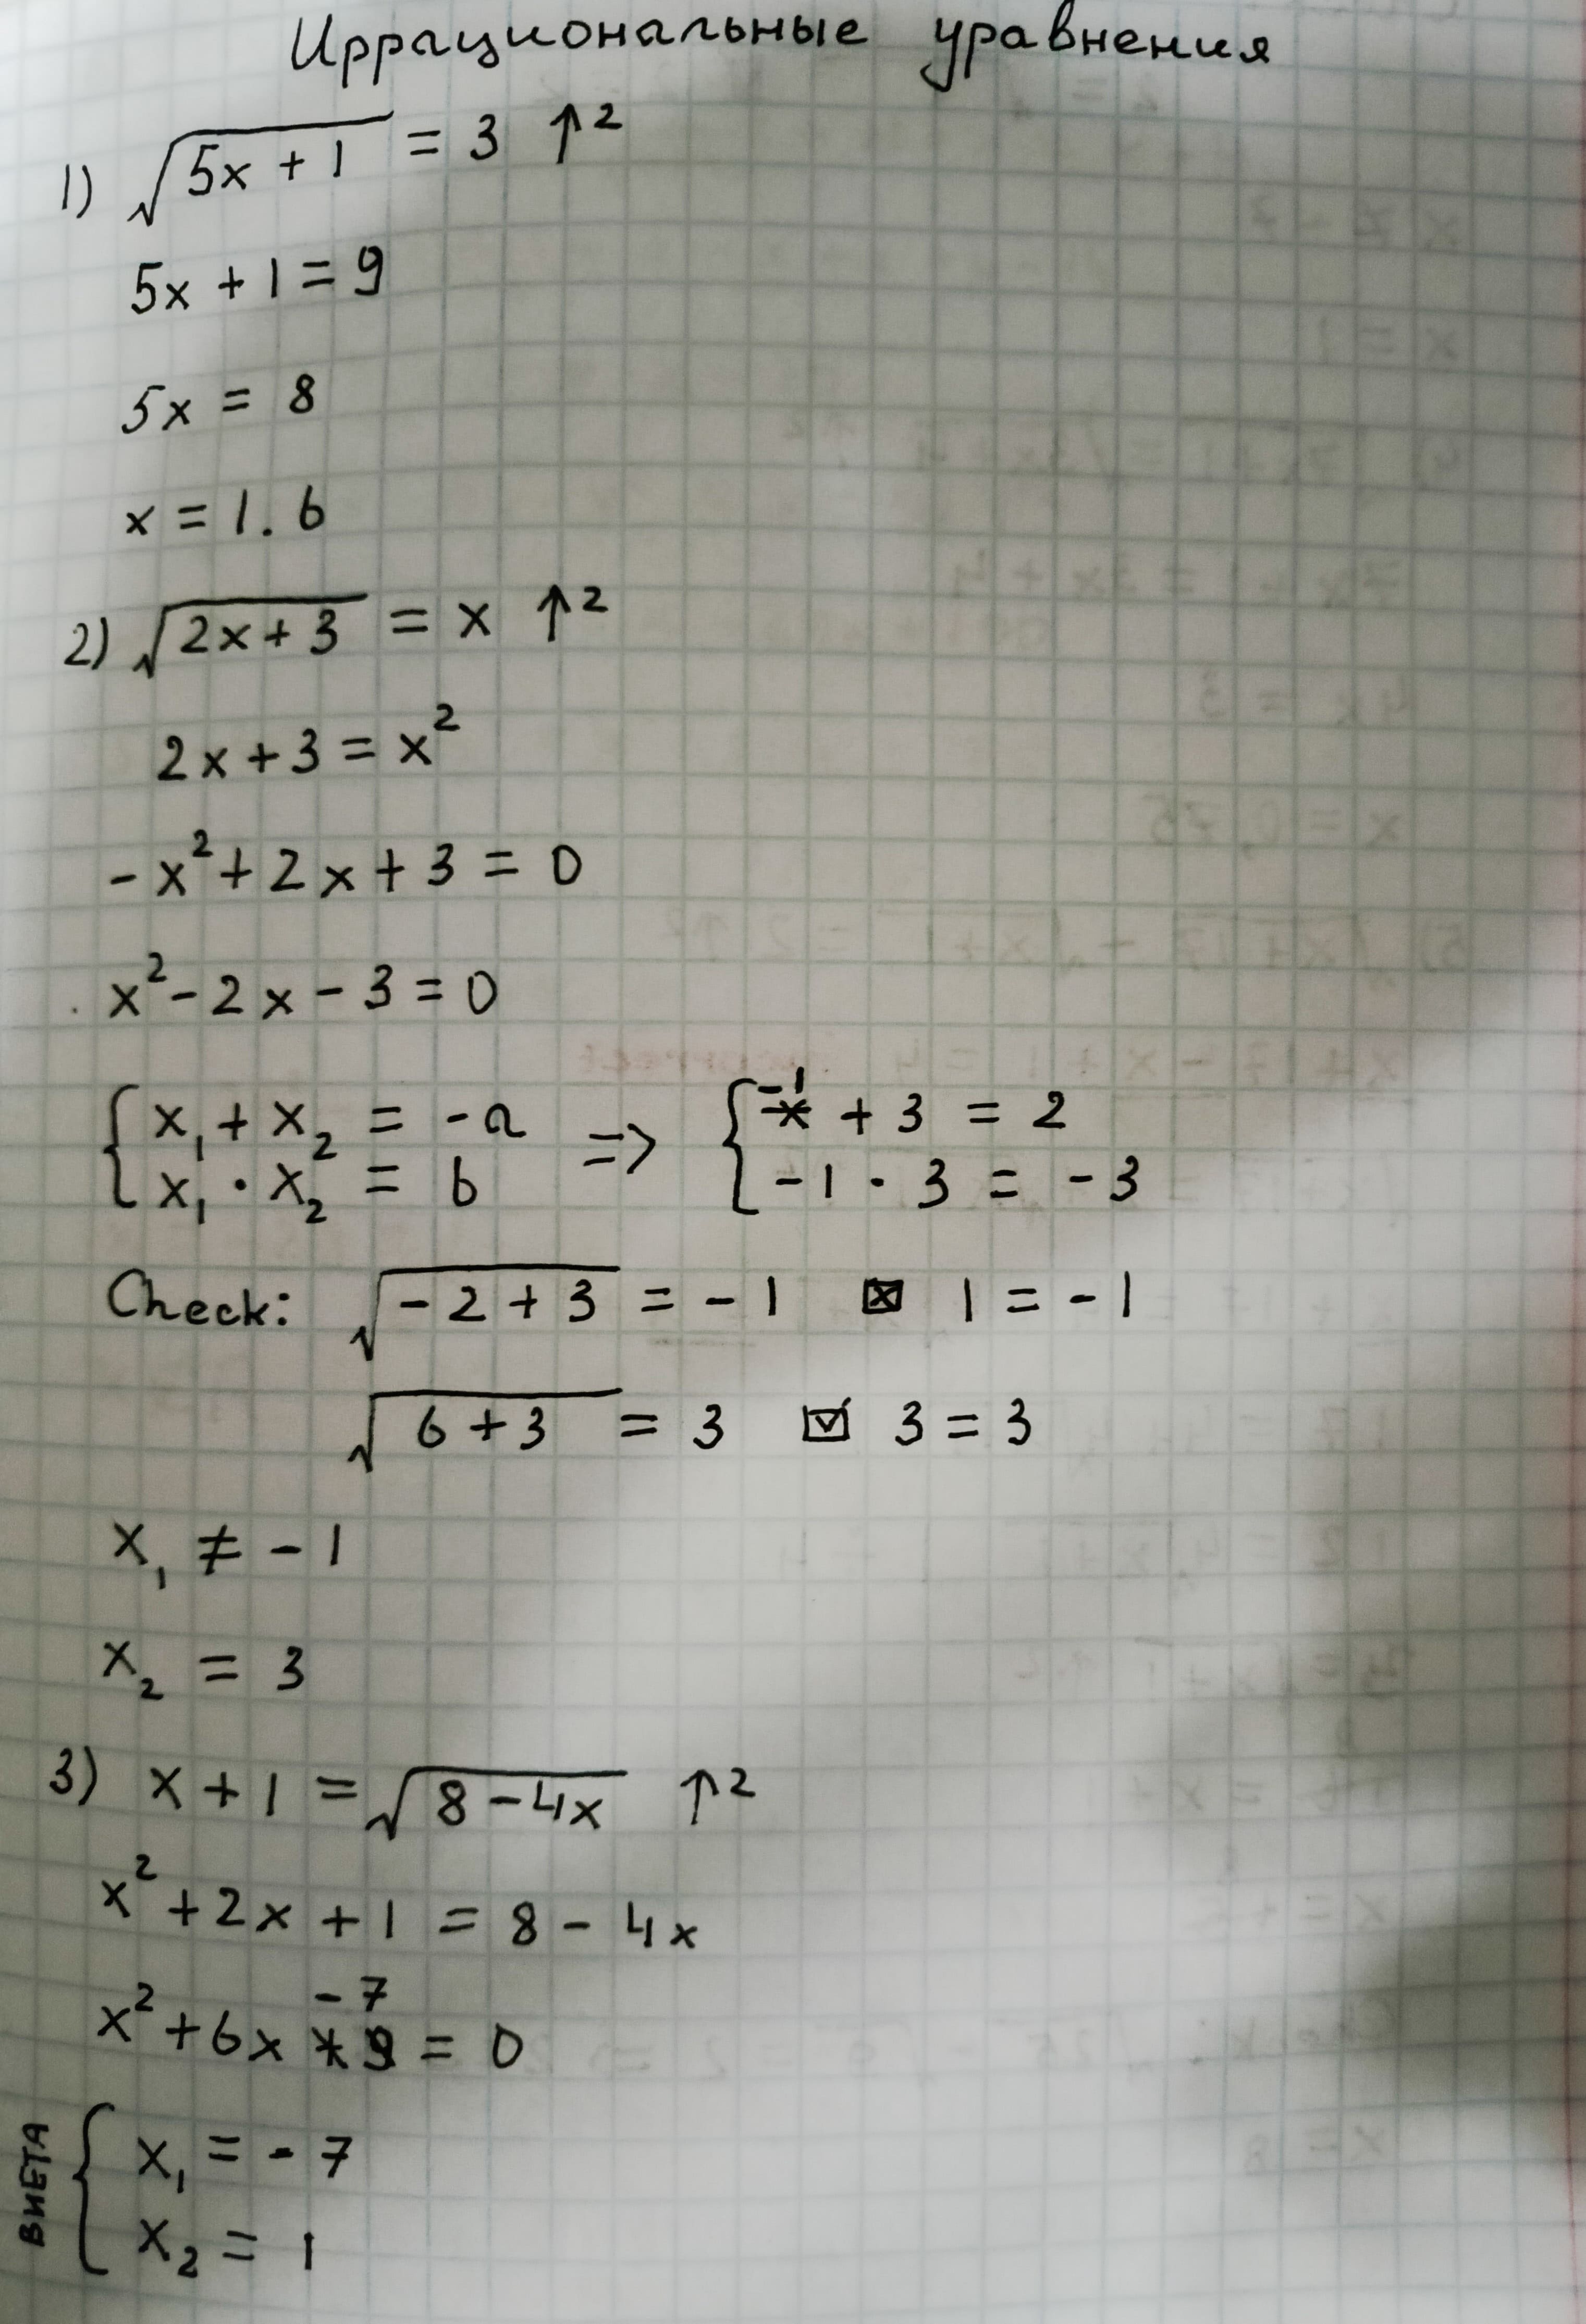 Иррациональные уравнения
1) √(5x + 1) = 3 ↑²
5x + 1 = 9
5x = 8
x = 1.6
2) √(2x + 3) = x ↑²
2x + 3 = x²
-x² + 2x + 3 = 0
x² - 2x - 3 = 0
{ x₁ + x₂ = -a => { -1 + 3 = 2
x₁ · x₂ = b -1 · 3 = -3
Check: √(-2 + 3) = -1 ☒ 1 = -1
√(6 + 3) = 3 ☑ 3 = 3
x₁ ≠ -1
x₂ = 3
3) x + 1 = √(8 - 4x) ↑²
x² + 2x + 1 = 8 - 4x
x² + 6x - 7 = 0
ВИЕТА { x₁ = -7
x₂ = 1